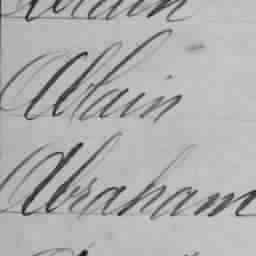 Ablain
Abraham